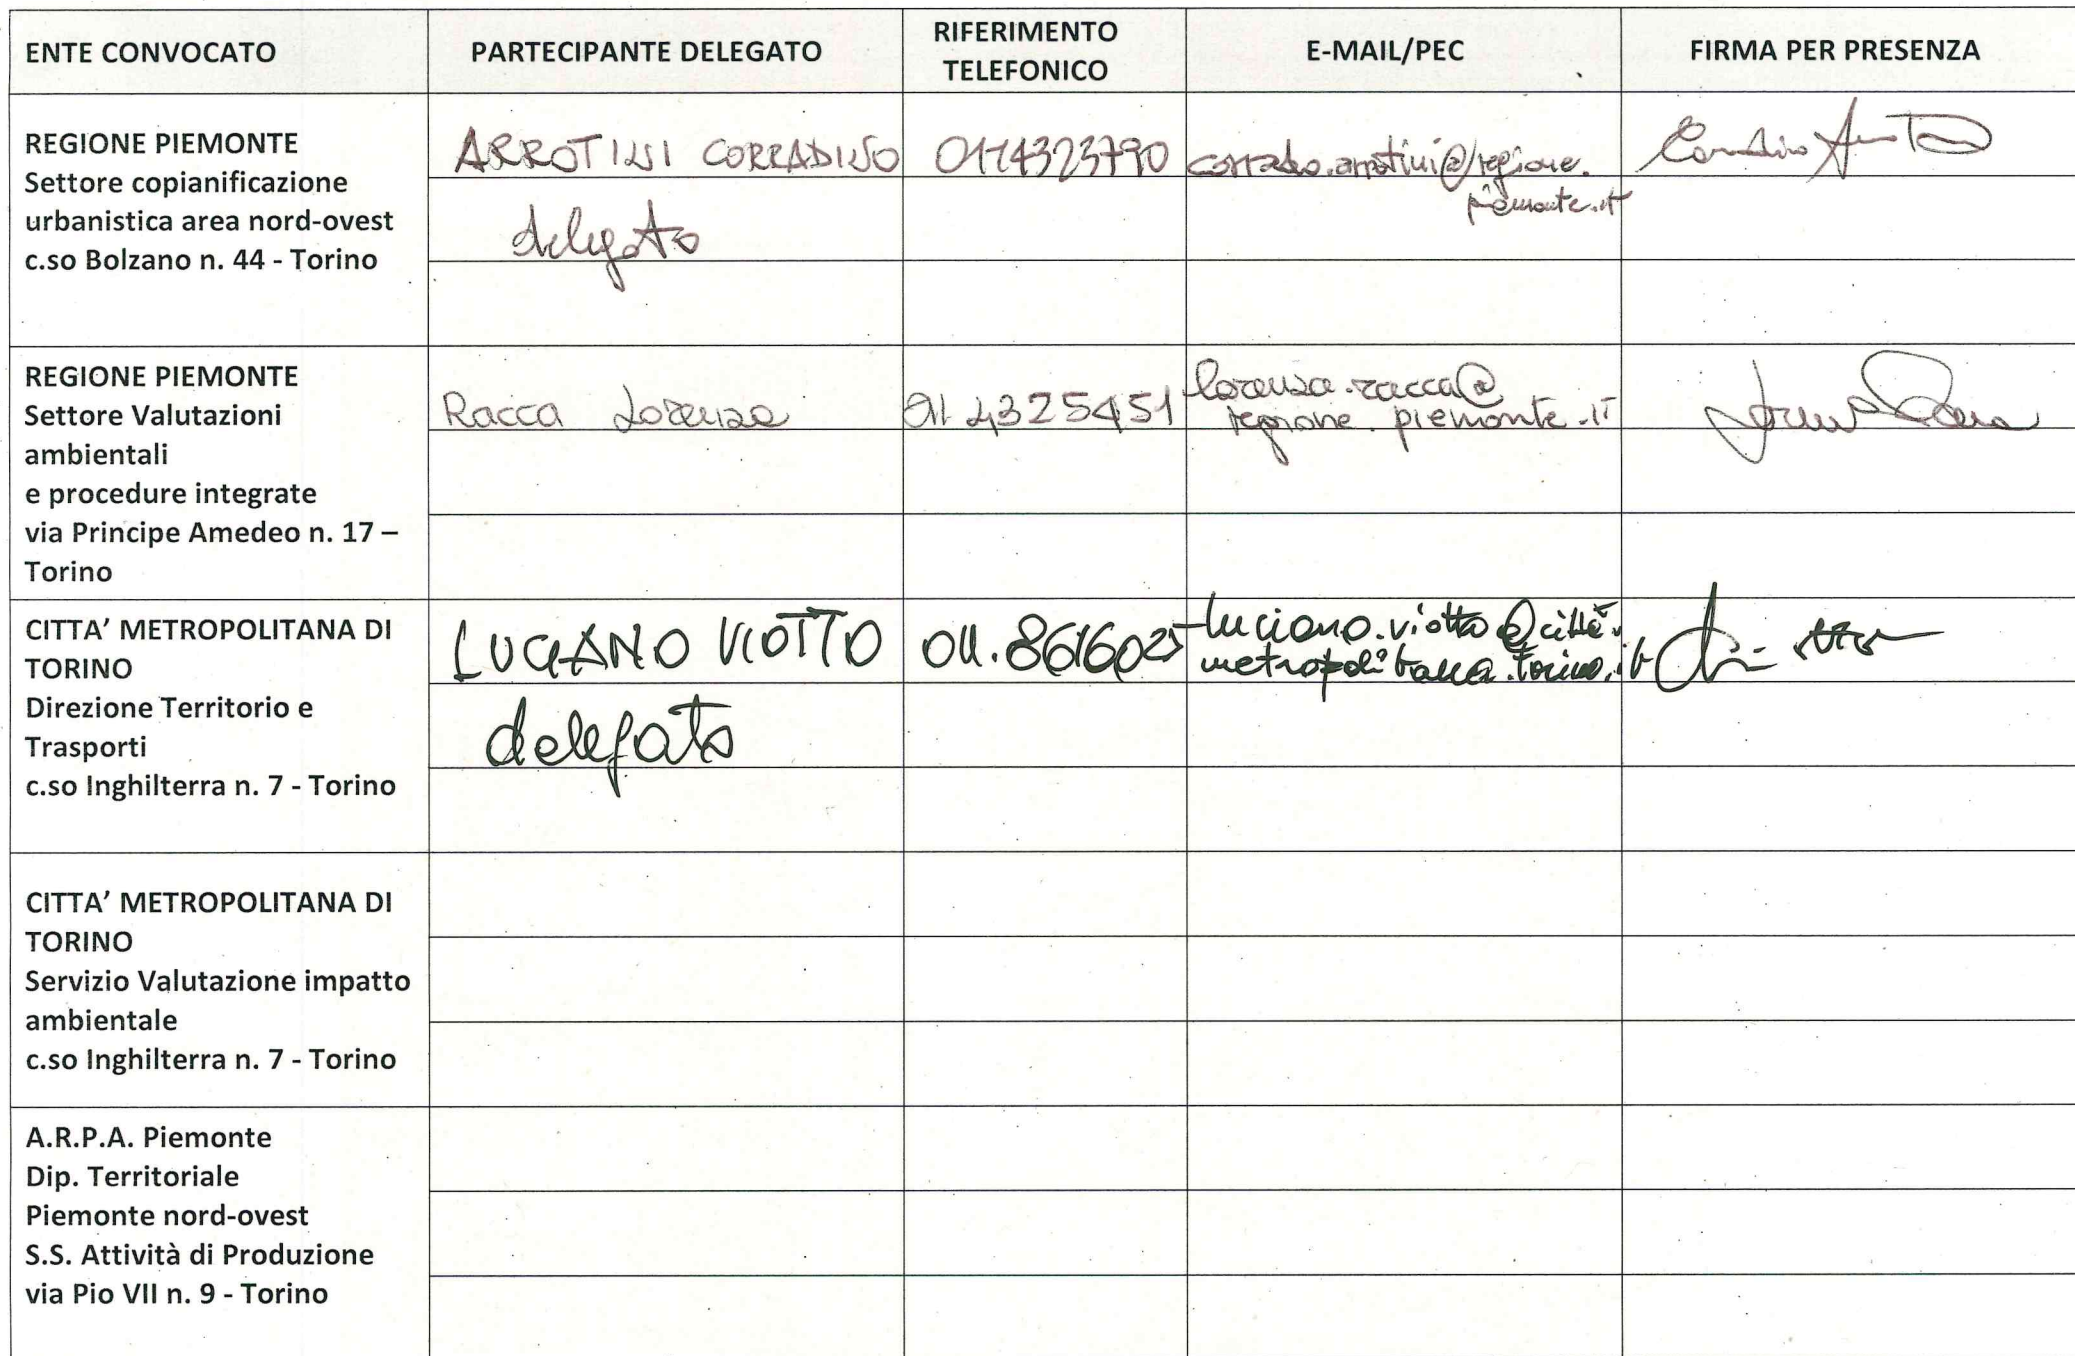 ENTE CONVOCATO
PARTECIPANTE DELEGATO
RIFERIMENTO
TELEFONICO
E-MAIL/PEC
FIRMA PER PRESENZA
REGIONE PIEMONTE
Settore copianificazione
urbanistica area nord-ovest
c.so Bolzano n. 44 - Torino
ARROTINI CORRADINO
delegato
0114323790
regione.
piemonte.it
REGIONE PIEMONTE
Settore Valutazioni
ambientali
e procedure integrate
via Principe Amedeo n. 17 –
Torino
Racca Lorenza
011 4325451
lorenza.racca@
regione.piemonte.it
CITTA' METROPOLITANA DI
TORINO
Direzione Territorio e
Trasporti
c.so Inghilterra n. 7 - Torino
LUCIANO VIOTTO
delegato
luciano.viotto@città
metropolitana.torino.it
CITTA' METROPOLITANA DI
TORINO
Servizio Valutazione impatto
ambientale
c.so Inghilterra n. 7 - Torino
A.R.P.A. Piemonte
Dip. Territoriale
Piemonte nord-ovest
S.S. Attività di Produzione
via Pio VII n. 9 - Torino